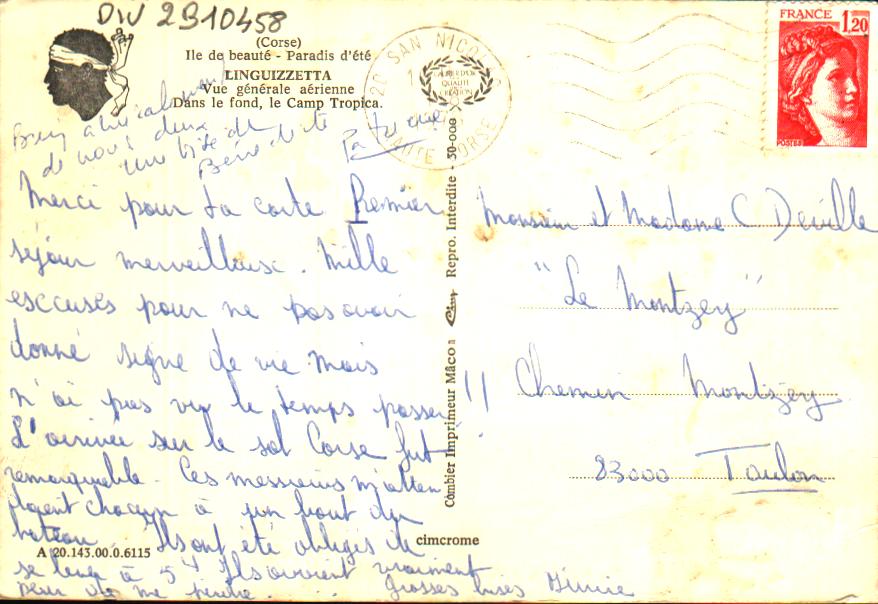 DIV 2B10458
(Corse)
Ile de beauté - Paradis d'été
LINGUIZZETTA
Vue générale aérienne
Dans le fond, le Camp Tropica.
Bien amicalement
de nous deux
une bise de
Bénédicte
Merci pour ta carte Premier
séjour merveilleux. Mille
escuses pour ne pas avoir
donné signe de vie mais
n'ai pas vu le temps passer !!
L'arrivée sur le sol Corse fut
remarquable. Ces messieurs m'atten
daient chacun à un bout du
bateau. Ils ont été obligés de
se lever à 5h Ils avaient vraiment
peur de me perdre. ...
grosses bises
Combier Imprimeur Mâcon
Repro. Interdite - 50-000
A 20.143.00.0.6115
cimcrome
20 SAN NICOLAO
HAUTE CORSE
FRANCE
1,20
POSTES
Monsieur et Madame C Deville
"Le Montzey"
Chemin Montzey
83000 Toulon